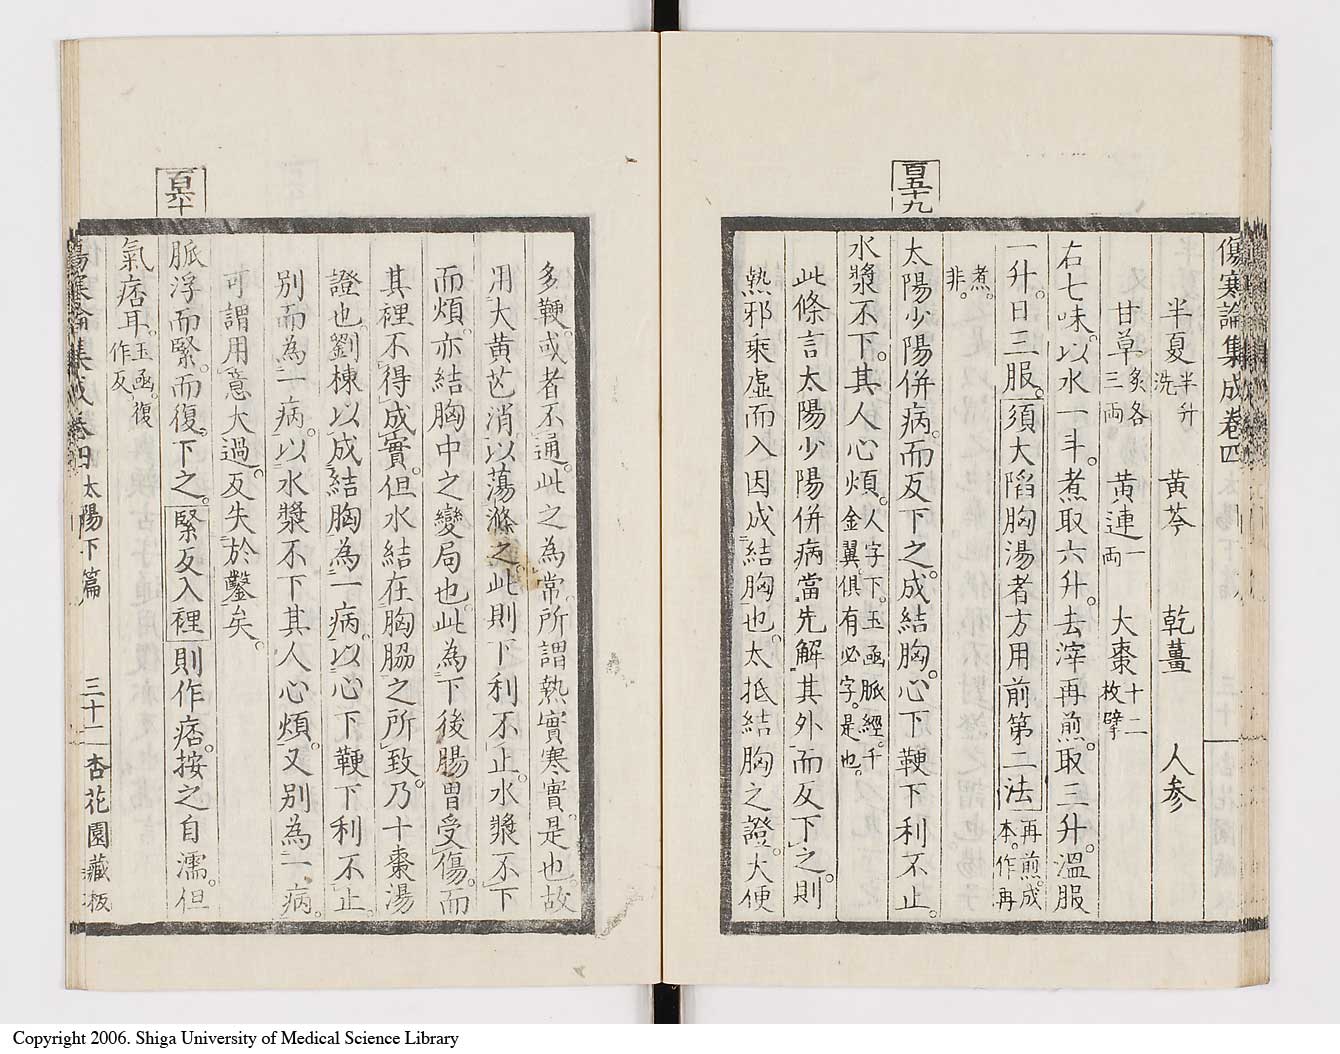 傷寒論集成卷四
半夏半升洗 黃芩 乾薑 人參
甘草炙各三兩 黃連一兩 大棗十二枚擘
右七味。以水一斗。煮取六升。去滓再煎。取三升。溫服
一升。日三服。須大陷胸湯者方用前第二法再煎。成本。作再
煮。非。
百五十九
太陽少陽併病。而反下之。成結胸。心下鞕下利不止。
水漿不下。其人心煩。人字下。玉函脈經。千金翼。俱有必字。是也。
此條言太陽少陽併病當先解其外而反下之則
熱邪乘虛而入因成結胸也。太抵結胸之證。大便
多鞕。或者不通。此之為常。所謂熱實寒實。是也。故
用大黃芒消以蕩滌之。此則下利不止。水漿不下
而煩。亦結胸中之變局也。此為下後腸胃受傷。而
其裡不得成實。但水結在胸脇之所致。乃十棗湯
證也。劉棟以成結胸為一病。以心下鞕下利不止。
別而為一病。以水漿不下其人心煩。又別為一病。
可謂用意大過。反失於鑿矣。
百六十
脈浮而緊。而復。下之。緊反入裡則作痞。按之自濡。但
氣痞耳。玉函。復作反
傷寒論集成卷四 太陽下篇 三十一 杏花園藏板
Copyright 2006. Shiga University of Medical Science Library